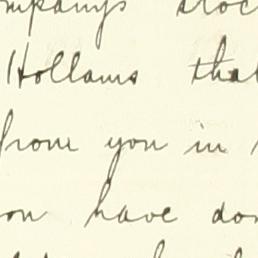 ompanys stoc
Hollams that
from you in
on have don